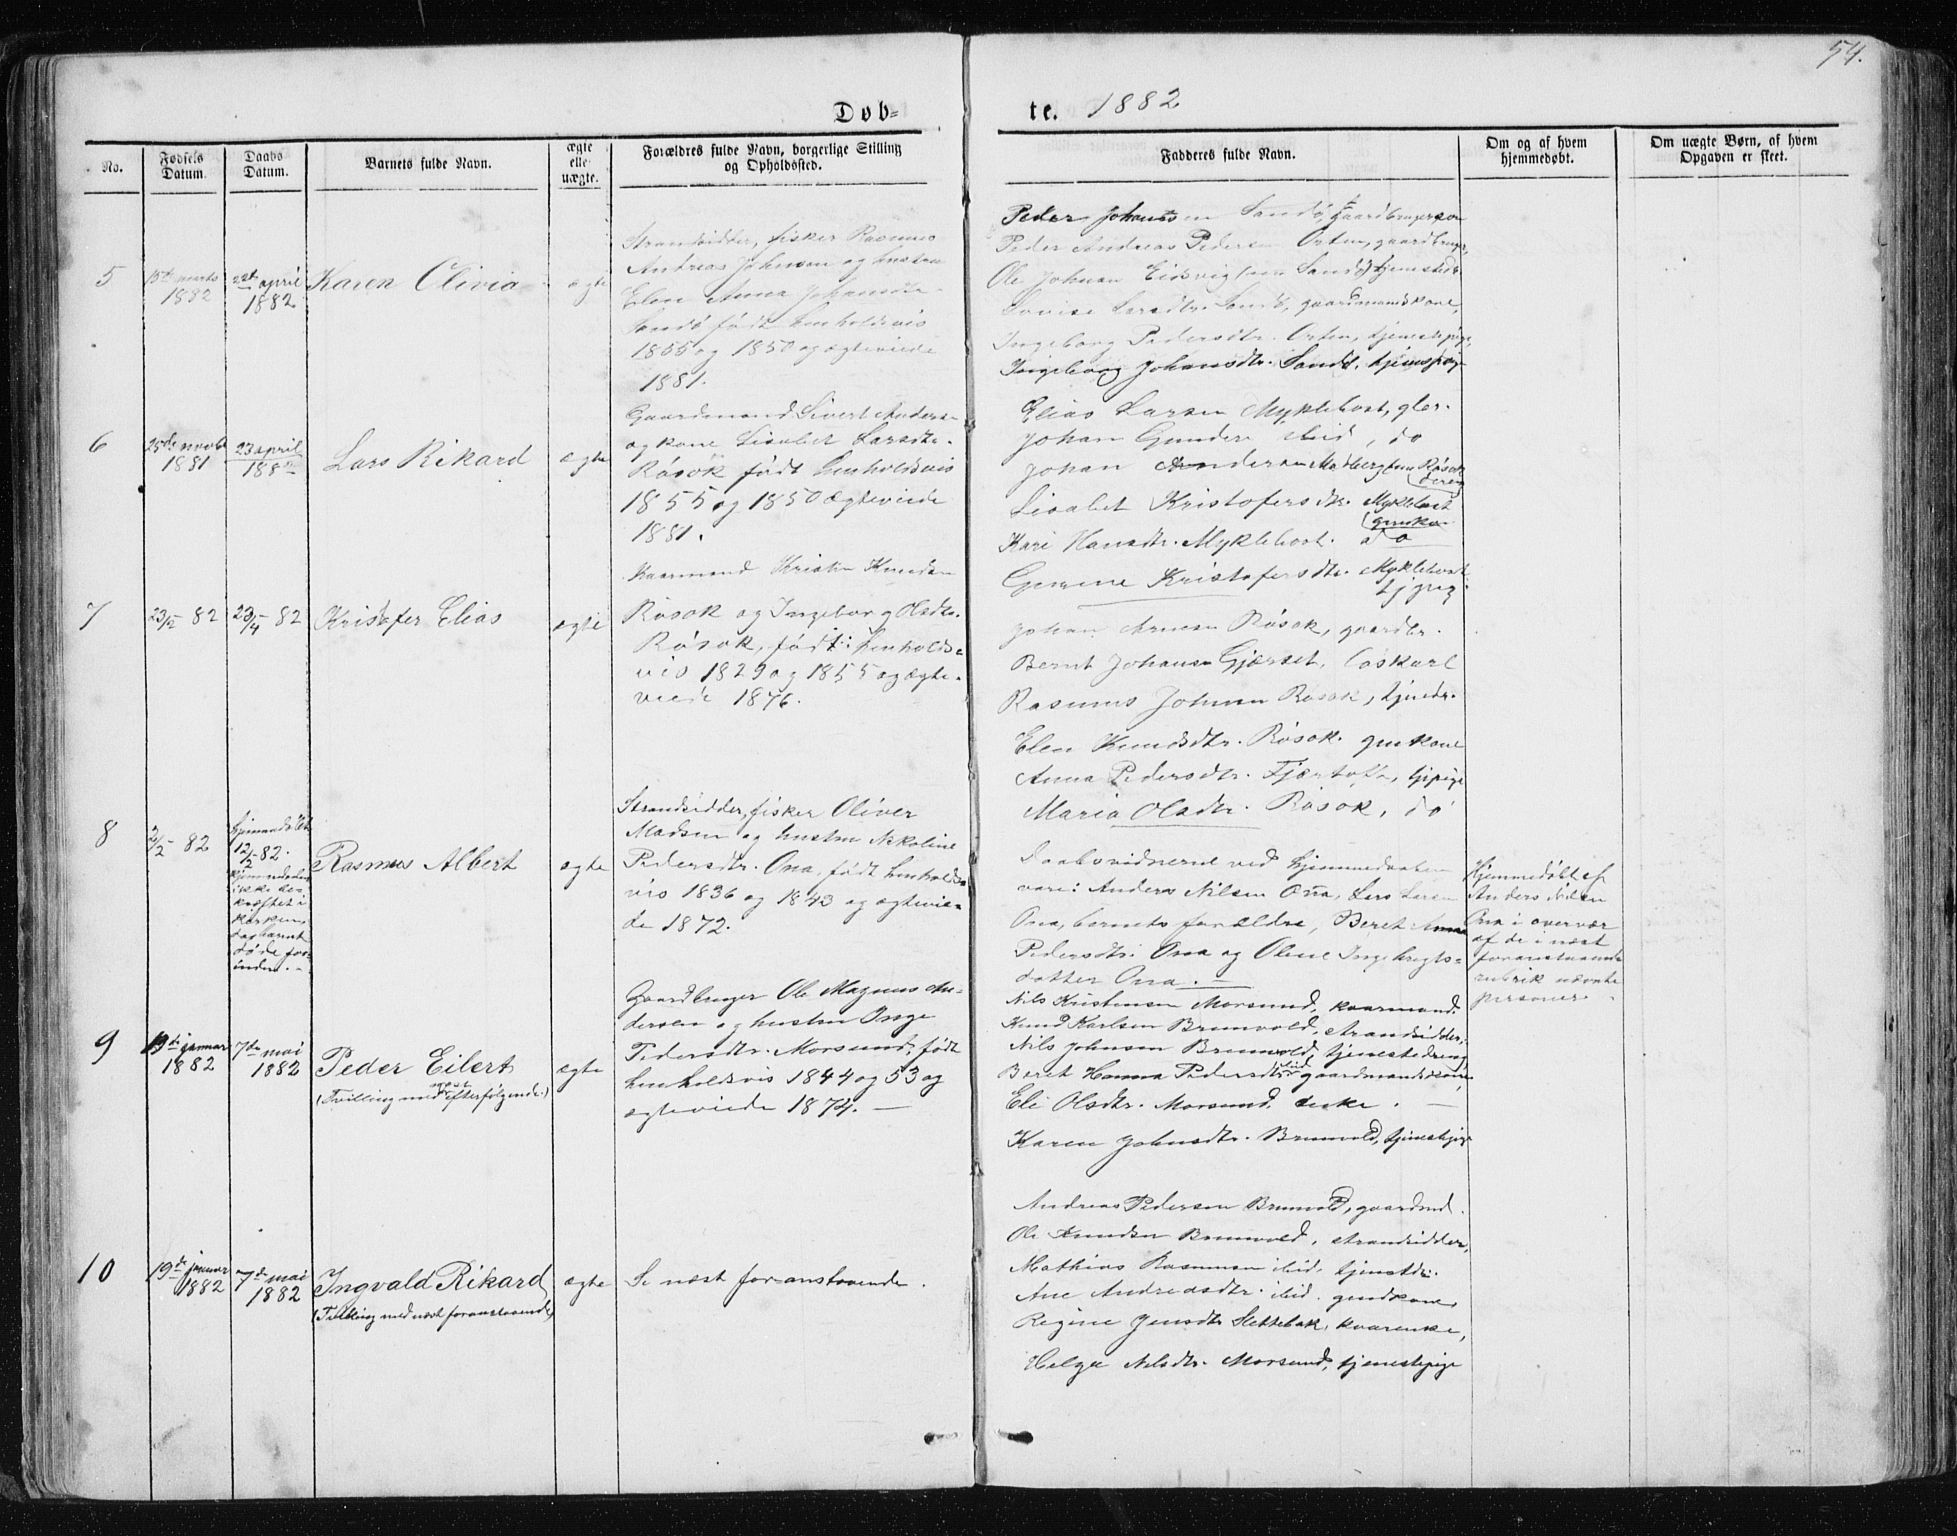 54.
Døb-
te. 1882
No.
Fødsels
Datum.
Daabs
Datum.
Barnets fulde Navn.
ægte
elle
uægte.
Forældres fulde Navn, borgerlige Stilling
og Opholdssted.
Fadderes fulde Navn.
Om og af hvem
hjemmedøbt.
Om uægte Børn, af hvem
Opgaven er skeet.
5
marts
1882
april
1882
Karen Olivia
ægte
Strandsidder, fisker Rasmus
Andreas Johnsen og hustru
Elen Anna
Sandø født henholdsvis
1855 og 1850 og ægteviede
1881.
Peder Johansen Sandø, gaardbrugersøn
Peder Andreas Pedersen Orten, gaardbruger,
Ole Johnan Eidsvig Sandø
Lovise Larsdtr. Sandø, gaardmandskone,
Ingeborg Pedersdtr. Orten, tjenestepige,
Ingeborg Johansdtr. Sandø, tjenstpige
6
25de novbr
1881
23 april
1882
Lars Rikard
ægte
Gaardmand Sivert Anders
og kone Lisabet Larsdtr.
Røsok født henholdsvis
1855 og 1850 ægteviede
1881.
Elias Larsen Myklebost, gbr.
Johan Gunders ibid, do
Johan Andersen Røsok
Lisabet Kristofersdtr. Myklebost
Kari Hansdtr. Myklebost. do
Kristofersdtr. Myklebost
7
23/2 82
23/4 82
Kristofer Elias
ægte
Kaarmand Kristen Knudsen
Røsok og Ingeborg Olsdtr.
Røsok, født: henholds-
vis 1829 og 1855 og ægte-
viede 1876.
Johan Arnesen Røsok, gaardbr.
Bernt Johansen Gjærset, løskarl
Rasmus Johnsen Røsok, tjendr.
Elen Knudsdtr. Røsok. gmkone
Anna Pedersdtr. Fjærtoft, tjpige
Maria Olsdtr. Røsok, do
8
2/2 82
hjemmedøbt
12/2 82.
hjemmedaaben
ikke be-
kræftet i
kirken,
da barnet
døde for-
inden. -
Rasmus Albert
ægte
Strandsidder, fisker Oliver
Madsen og hustru Nikoline
Pedersdtr. Ona, født henholds-
vis 1836 og 1843 og ægtevie-
de 1872.
Daabsvidnerne ved hjemmedaaben
vare: Anders Nilsen Ona, Lars Larsen
Ona, barnets forældre, Beret Anna
Pedersdtr. Ona og Olene Ingebrigts-
datter Ona. -
Hjemmedøbt af
Anders Nilsen
Ona i overvær
af de i næst
foranstaaende
rubrik nævnte
personer. -
9
19de januar
1882
7de mai
1882
Peder Eilert
(Tvilling med næst efterfølgende.)
ægte
Gaardbruger Ole Magnus An-
dersen og hustru Inge
Pedersdtr. Morsund, født
henholdsvis 1844 og 53 og
ægteviede 1874. -
Nils Kristensen Morsund, kaarmand.
Knud Karlsen Brunvold, strandsidder,
Nils Johnsen Brunvold, tjenestedreng
Beret Hanna Pedersdtr. ibid gaardmandskone
Eli Olsdtr. Morsund, enke. -
Karen Johnsdtr. Brunvold, tjenestepige
10
19de januar
1882
7de mai
1882
Ingvald Rikard
(Tvilling med næst foranstaaende)
ægte
Se næst foranstaaende.
Andreas Pedersen Brunvold, gaardmd.
Ole Knudsen Brunvold, strandsidder,
Mathias Rasmussen ibid, tjenstdr.
Ane Andreasdtr. ibid. gmdkone,
Regine Jensdtr Slettebak, kaarenke,
Helga Nilsdtr. Morsund, tjenestepige